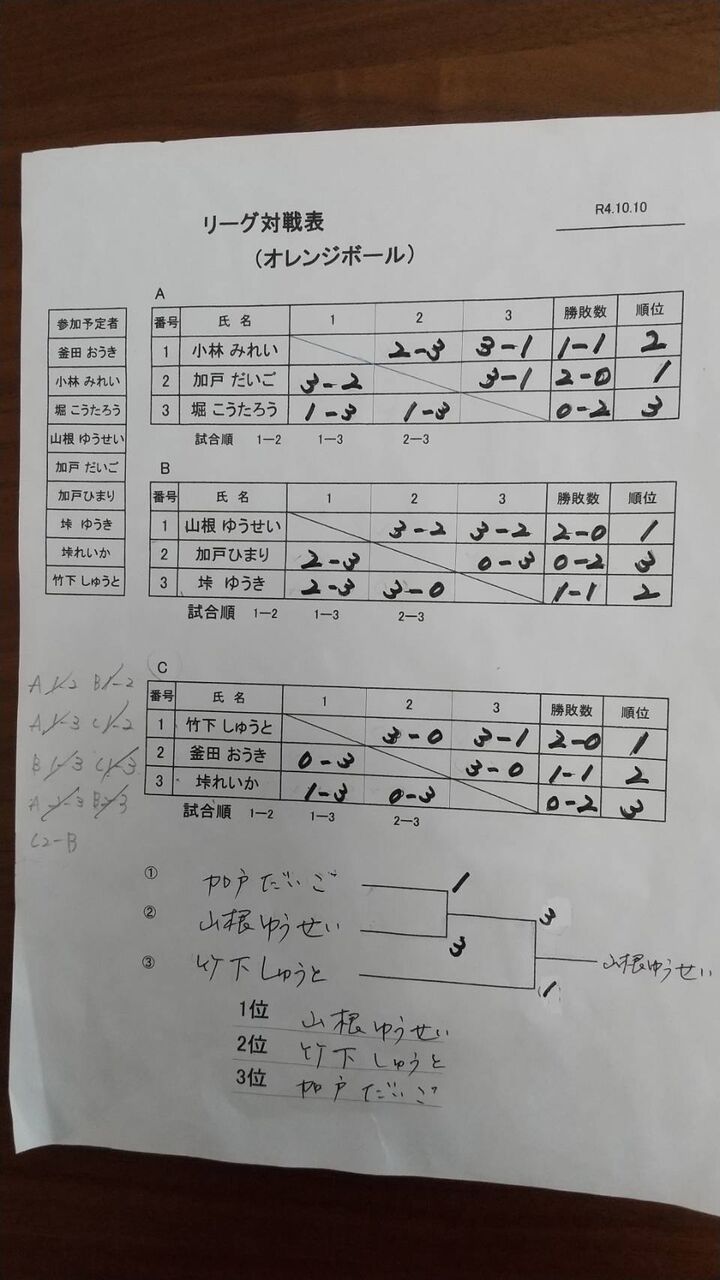 R4.10.10
リーグ対戦表
（オレンジボール）
参加予定者
釜田 おうき
小林 みれい
堀 こうたろう
山根 ゆうせい
加戸 だいご
加戸ひまり
垰 ゆうき
垰れいか
竹下 しゅうと
A
番号 氏 名 1 2 3 勝敗数 順位
1 小林 みれい 2-3 3-1 1-1 2
2 加戸 だいご 3-2 3-1 2-0 1
3 堀 こうたろう 1-3 1-3 0-2 3
試合順 1―2 1―3 2―3
B
番号 氏 名 1 2 3 勝敗数 順位
1 山根 ゆうせい 3-2 3-2 2-0 1
2 加戸ひまり 2-3 0-3 0-2 3
3 垰 ゆうき 2-3 3-0 1-1 2
試合順 1―2 1―3 2―3
C
番号 氏 名 1 2 3 勝敗数 順位
1 竹下 しゅうと 3-0 3-1 2-0 1
2 釜田 おうき 0-3 3-0 1-1 2
3 垰れいか 1-3 0-3 0-2 3
試合順 1―2 1―3 2―3
A 1-2 B 1-2
A 1-3 C 1-2
B 1-3 C 1-3
① 加戸 だいご 1
② 山根 ゆうせい 3 3
③ 竹下 しゅうと 1 山根 ゆうせい
1位 山根 ゆうせい
2位 竹下 しゅうと
3位 加戸 だいご